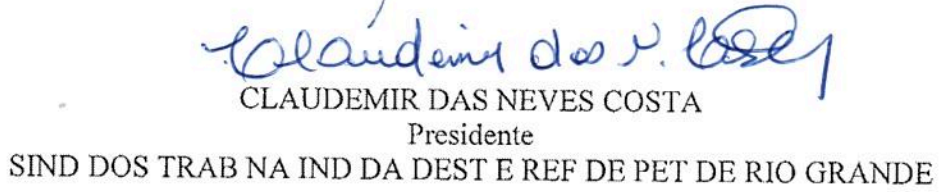 Claudemir das N. Costa
CLAUDEMIR DAS NEVES COSTA
Presidente
SIND DOS TRAB NA IND DA DEST E REF DE PET DE RIO GRANDE